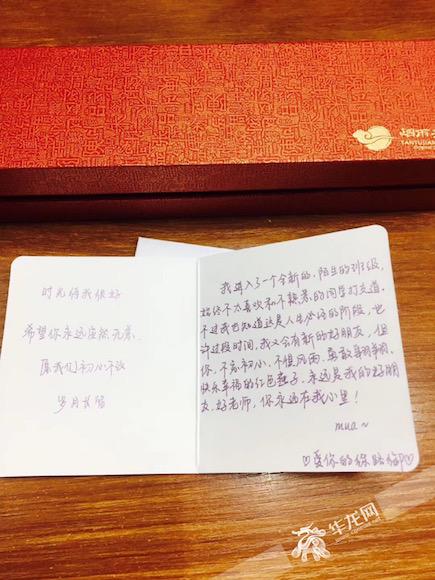 TANYUJIAN
时光待我很好
希望你永远安然无恙
愿我们初心不改
岁月长留
我进入了一个全新的、陌生的班级,
始终不太喜欢和不熟悉的同学打交道。
不过我也知道这是人生必经的阶段,也
许过段时间,我又会有新的好朋友,但
你,不忘初心,不惧风雨,勇敢翱翔,
快乐幸福的红色燕子,永远是我的好朋
友、好老师,你永远在我心里!
mua~
♡爱你的徐
华龙网